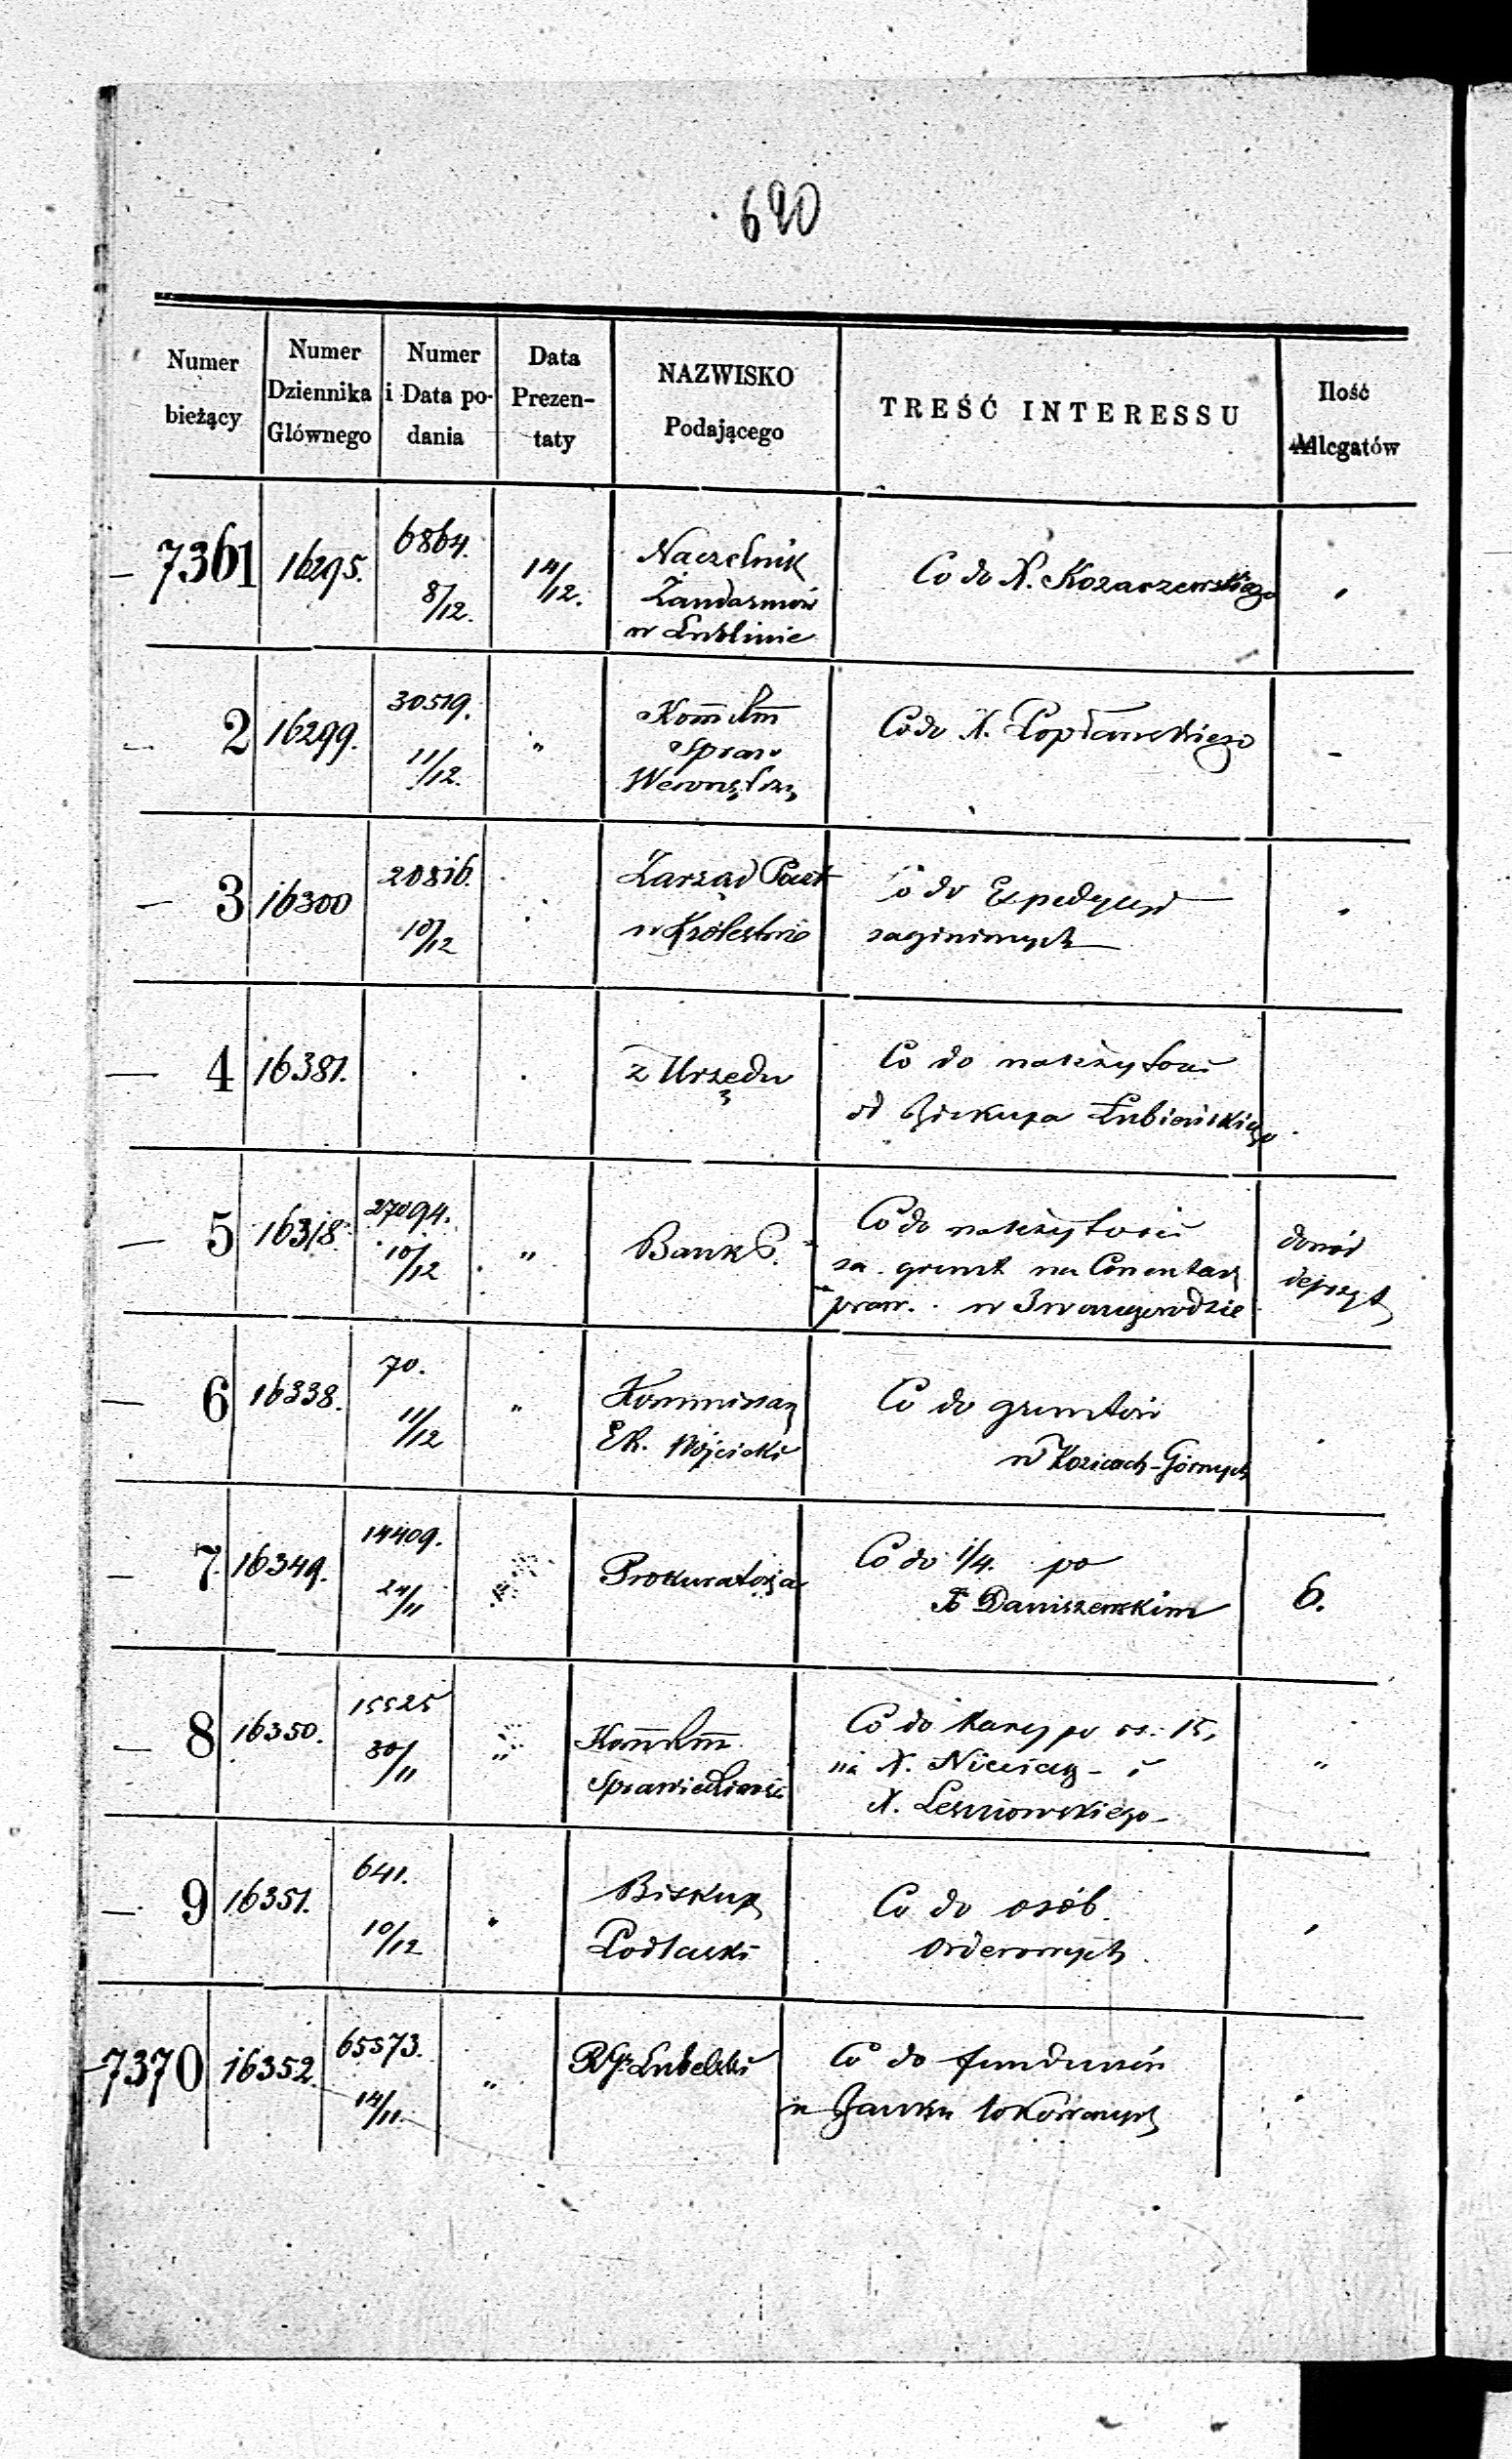 620
Numer bieżący
Numer Dziennika Głównego
Numer i Data podania
Data Prezentaty
NAZWISKO Podającego
TREŚĆ INTERESSU
Ilość Allegatów
7361 16295. 6864. 8/12. 14/12. Naczelnik Co do X. Kozarzewskiego "
Żandarmów
w Lublinie
2 16299. 30519. 11/12. " Spraw Co do X. -
Wewnętrz
3 16300 20816. 10/12 Zarząd Poczt Co do Expedycyi "
w Królestwie zaginionych
4 16381. . . z Urzędu Co do należytości
od Biskupa Łubieńskiego
5 16318. 27094. 10/12 " Bank P. Co do należytości dowód
za grunt na Cmentarz depozyt
praw. w Iwangrodzie
6 16338. 70. 11/12 " Kommissarz Co do gruntów .
Wójcicki w Kozicach-Górnych
7. 16349. 14409. 24/11 Prokuratorja Co do 1/4. po 6.
X Daniszewskim
8 16350. 15525 30/11 " Co do kary po rs. 15, "
Sprawiedliwości na X. i
X. Leszniowskiego
9 16351. 641. 10/12 Biskup Co do osób "
Podlaski orderowych
7370 16352. 65573. 14/11. " Lubelski Co do funduszów
w Banku lokowanych